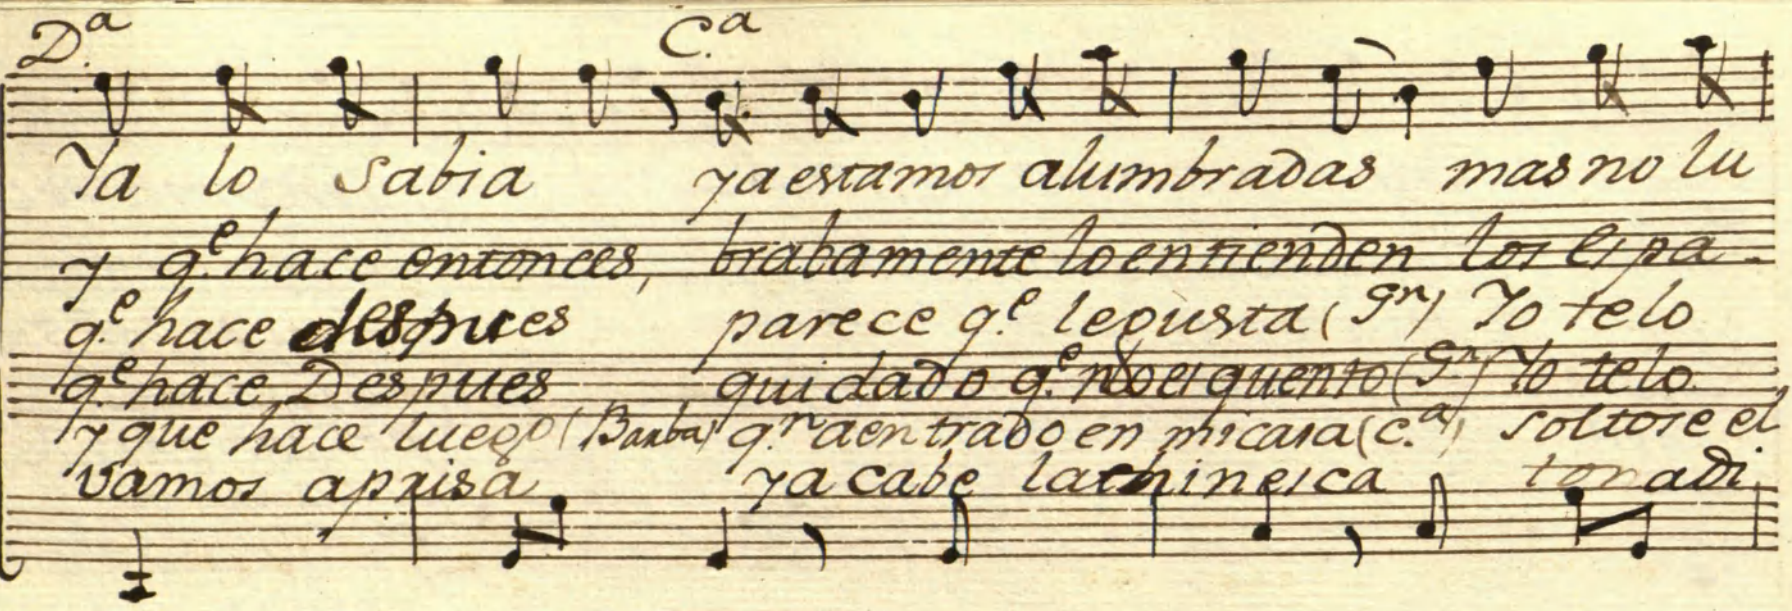 D.ª C.ª
Ya lo Sabia ya estamos alumbradas mas no lu
y q.e hace entonces, brabamente lo entienden los espa-
q.e hace despues parece q.e le gusta (Gr) Yo te lo
q.e hace Despues quidado q.e no es quento (Gr) Yo te lo
y que hace luego (Barba) q.n a entrado en mi casa (C.ª) soltose el
vamos aprisa ya cabe la chinesca tonadi